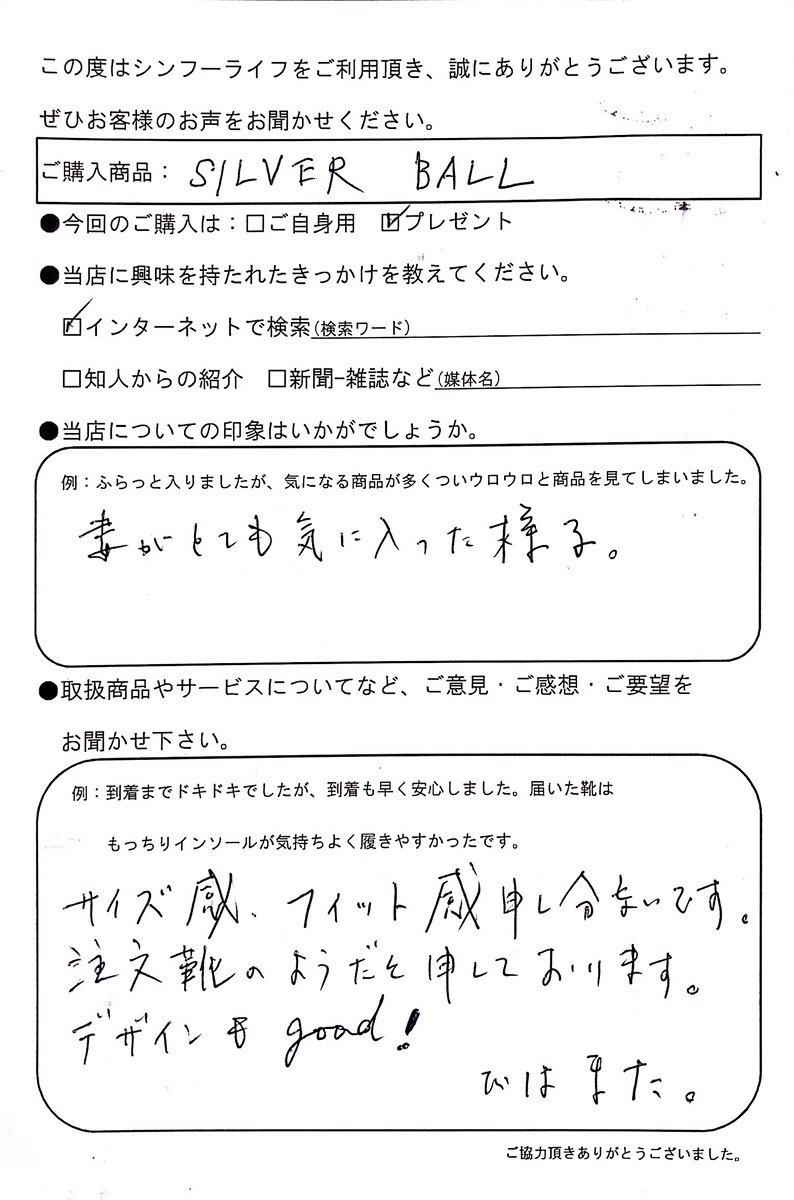 この度はシンフーライフをご利用頂き、誠にありがとうございます。
ぜひお客様のお声をお聞かせください。
ご購入商品： SILVER BALL
●今回のご購入は：□ご自身用 ☑プレゼント
●当店に興味を持たれたきっかけを教えてください。
☑インターネットで検索(検索ワード)
□知人からの紹介 □新聞-雑誌など(媒体名)
●当店についての印象はいかがでしょうか。
例：ふらっと入りましたが、気になる商品が多くついウロウロと商品を見てしまいました。
妻がとても気に入った様子。
●取扱商品やサービスについてなど、ご意見・ご感想・ご要望を
お聞かせ下さい。
例：到着までドキドキでしたが、到着も早く安心しました。届いた靴は
もっちりインソールが気持ちよく履きやすかったです。
サイズ感、フィット感申し分ないです。
注文靴のようだと申しております。
デザインも good!
ではまた。
ご協力頂きありがとうございました。